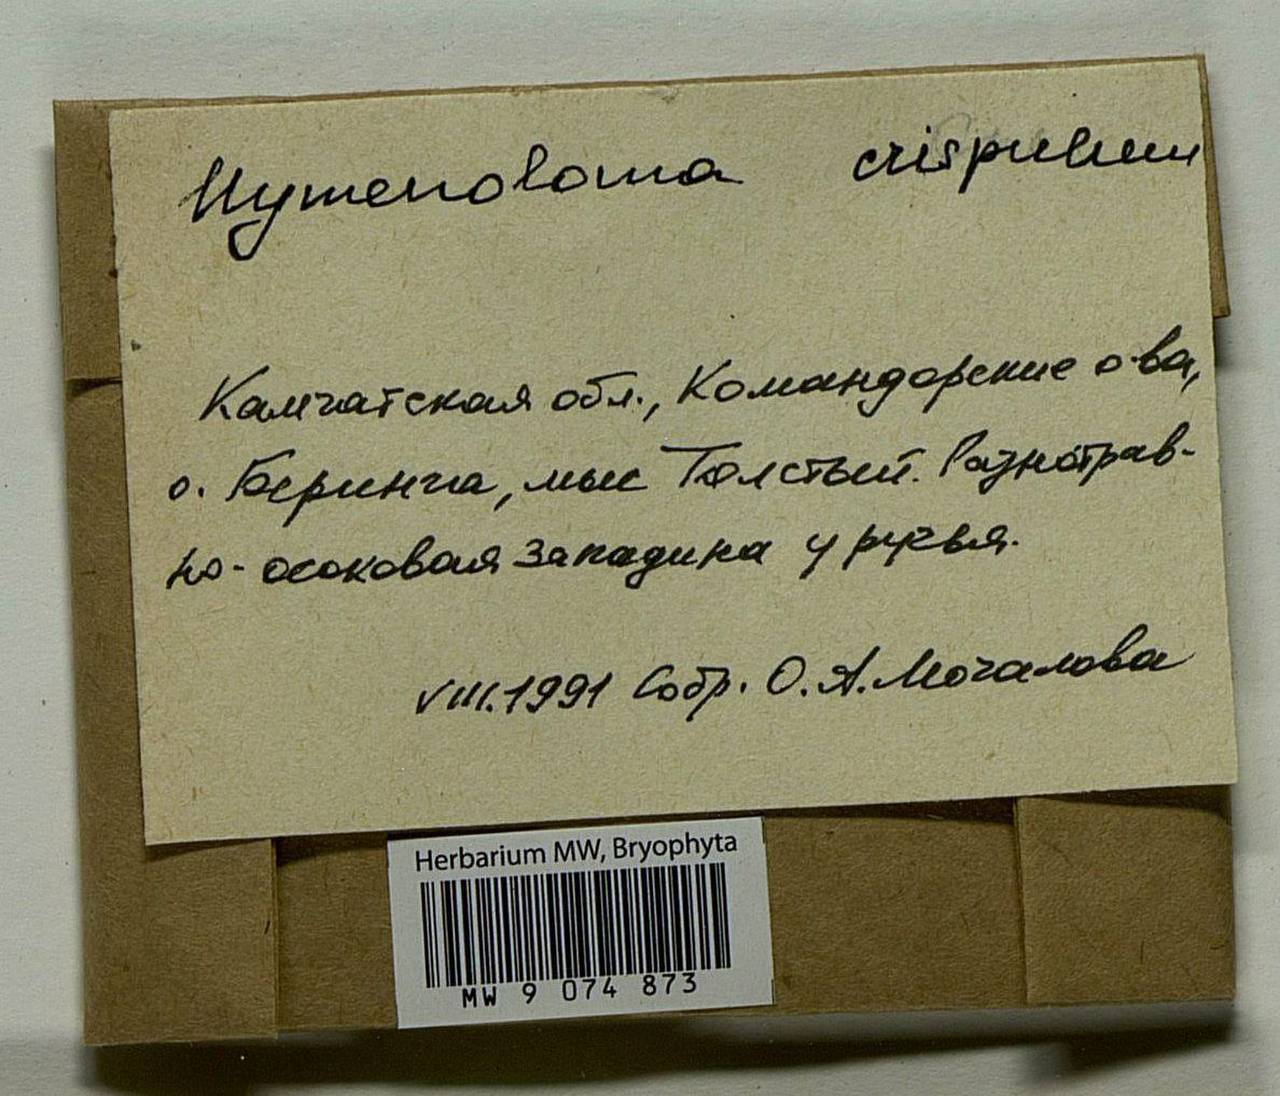 Hymenoloma crispulum
Камчатская обл., Командорские о-ва,
о. Беринга, мыс Толстый. Разнотрав-
но-осоковая западина у ручья.
VIII.1991 Собр. О.А.Мочалова
Herbarium MW, Bryophyta
MW 9 074 873